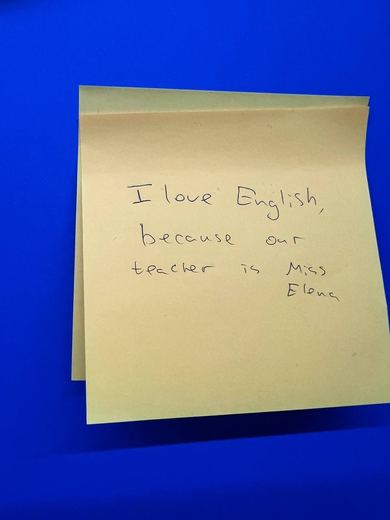 I love English,
because our
teacher is Miss
Elena